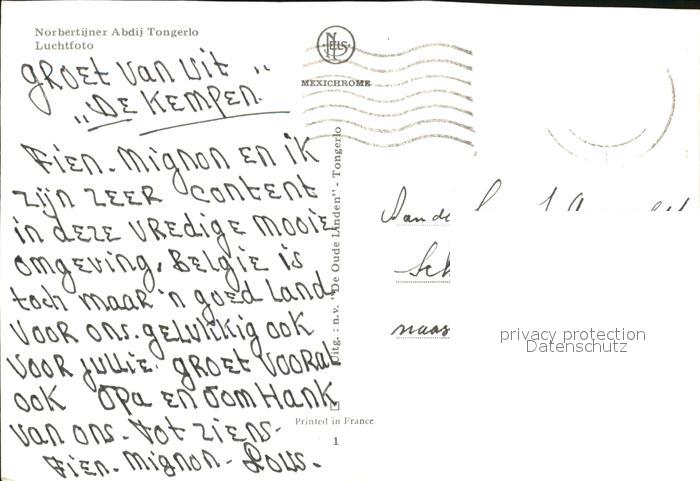 Norbertijner Abdij Tongerlo
Luchtfoto
NELS
MEXICHROME
GROET VAN UIT "
"DE KEMPEN.
Fien. Mignon EN ik
zijn ZEER CONTENT
in dEZE VREDIGE MOOIE
OMGEVING. BELGIE is
toch MAAR 'n goEd Land
VOOR ONS. gELUKKIG OOK
VOOR jullie. GROET VOORAL
OOK OPA EN OOM HANK.
VAN ONS. Tot ZIENS-
Fien. Mignon-
Uitg. : n.v. "De Oude Linden" - Tongerlo
Printed in France
1
Aan de
Sch
naas
privacy protection
Datenschutz